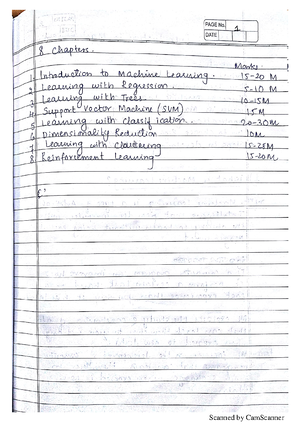 PAGE No. 1
DATE
8 Chapters.
Marks
1 Introduction to Machine Learning. 15-20 M
2 Learning with Regression. 5-10 M
3 Learning with Trees. 10-15M
4 Support Vector Machine (SVM) 15M
5 Learning with classification. 20-30M
6 Dimensionality Reduction 10M
7 Learning with clustering 15-25M
8 Reinforcement Learning 15-20M
Scanned by CamScanner